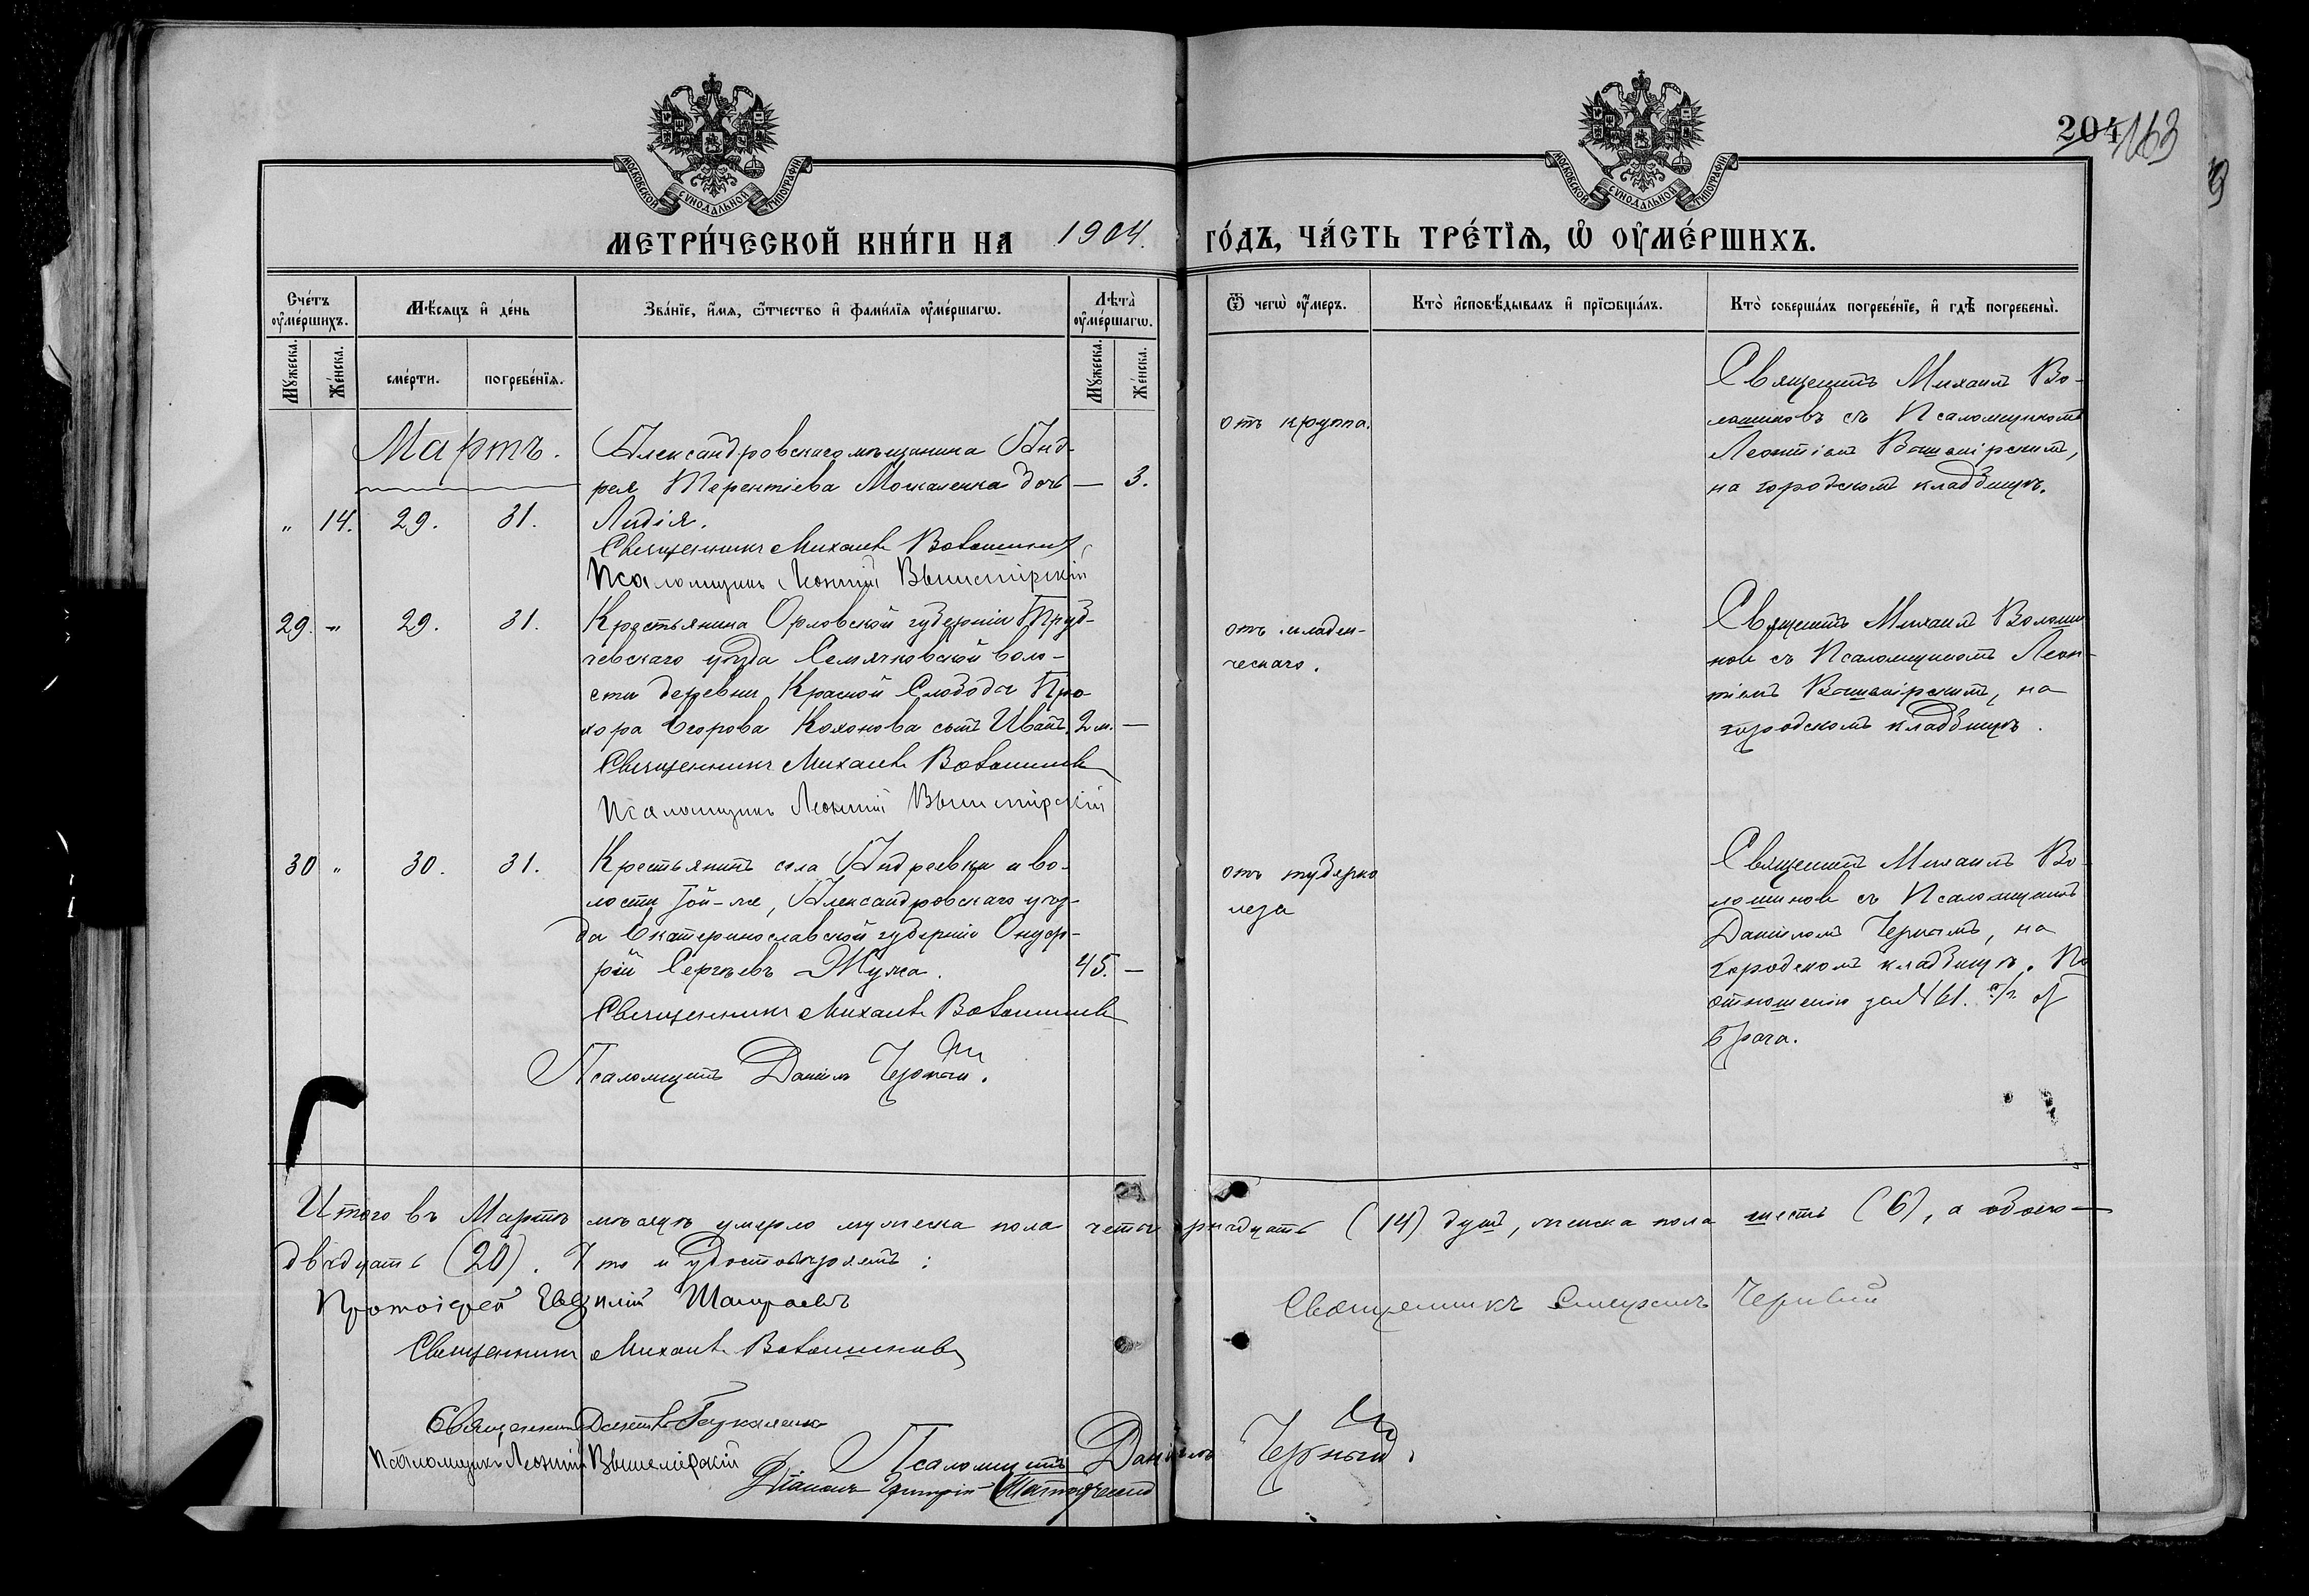 МОСКОВСКОЙ СѴНОДАЛЬНОЙ ТИПОГРАФІИ
МОСКОВСКОЙ СѴНОДАЛЬНОЙ ТИПОГРАФІИ
204 163
МЕТРИ́ЧЕСКОЙ КНИ́ГИ НА 1904. ГО́ДЪ, ЧА́СТЬ ТРЕ́ТЇѦ, Ѡ҆ ОУ҆МЕ́РШИХЪ.
Счетъ оу҆ме́ршихъ.
Мѣ́сяцъ и҆ де́нь
Зва́нїе, и҆́мя, ѻ҆́тчество и҆ фами́лїя оу҆ме́ршагѡ.
Лѣта̀ оу҆ме́ршагѡ.
Ѿ чегѡ̀ оу҆́меръ.
Кто̀ и҆сповѣ́дывалъ и҆ прїѡбща́лъ.
Кто̀ соверша́лъ погребе́нїе, и҆ гдѣ̀ погребены̀.
Мꙋ́жеска.
Же́нска.
сме́рти.
погребе́нїя.
Мꙋ́жеска.
Же́нска.
Мартъ.
Александровскаго мѣщанина Анд-
рея Терентіева Москаленка дочь — 3.
„ 14. 29. 31. Лидія.
Священникъ Михаилъ Волошиновъ
Псаломщикъ Леонтій Вышемірскій
отъ круппа.
Священникъ Михаилъ Во-
лошиновъ съ Псаломщикомъ
Леонтіемъ Вышемірскимъ,
на городскомъ кладбищѣ.
29. „ 29. 31. Крестьянина Орловской губерніи Труб-
чевскаго уѣзда Семячковской воло-
сти деревни Красной Слободы Про-
хора Егорова Кохонова сынъ Иванъ. 2 м. —
Священникъ Михаилъ Волошиновъ
Псаломщикъ Леонтій Вышемірскій
отъ младен-
ческаго.
Священникъ Михаилъ Волоши
новъ съ Псаломщикомъ Леон-
тіемъ Вышемірскимъ, на
городскомъ кладбищѣ.
30 „ 30. 31. Крестьянинъ села Андреевки и во-
лости той-же, Александровскаго уѣз-
да Екатеринославской губерніи Онуф-
рій Сергѣевъ Жужа. 45. —
Священникъ Михаилъ Волошиновъ
Псаломщикъ Даніилъ Черный.
отъ туберко
леза
Священникъ Михаилъ Во-
лошиновъ съ Псаломщикомъ
Даніиломъ Чернымъ, на
городскомъ кладбищѣ. По
отношенію за № 161.
врача.
Итого въ Мартѣ мѣсяцѣ умерло мужеска пола четырнадцать (14) душъ, женска пола шесть (6), а обоего —
двадцать (20). Что и удостовѣряемъ:
Протоіерей
Священникъ Черный
Священникъ Михаилъ Волошиновъ
Священникъ
Псаломщикъ Леонтій Вышемірскій
Псаломщикъ Даніилъ Черный.
Діаконъ Григорій